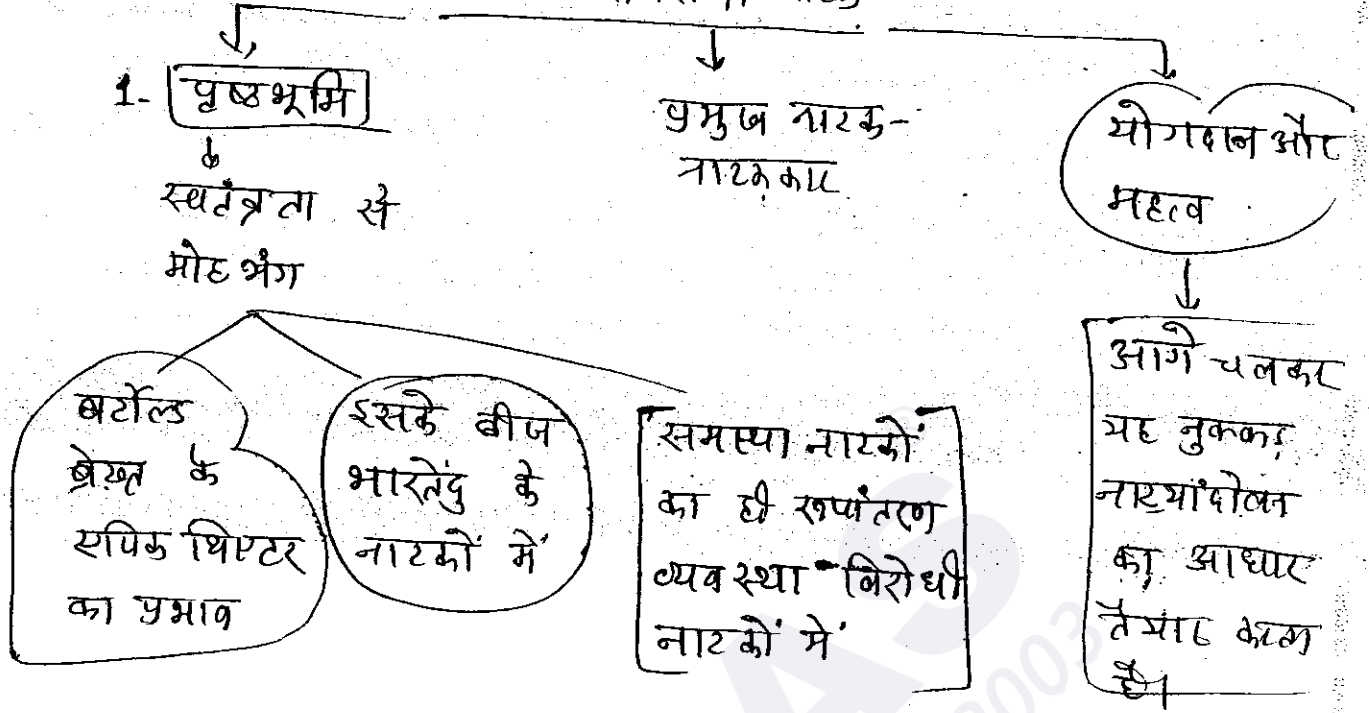 1- पृष्ठभूमि
स्वतंत्रता से
मोह भंग
बर्टोल्ड
ब्रेख्त के
एपिक थिएटर
का प्रभाव
इसके बीज
भारतेंदु के
नाटकों में
समास्या नाटकों
का ही रूपांतरण
व्यवस्था विरोधी
नाटकों में
प्रमुख नाटक-
नाटककार
योगदान और
महत्व
आगे चलकर
यह नुक्कड़
नाट्यांदोलन
का आधार
तैयार करता
है।